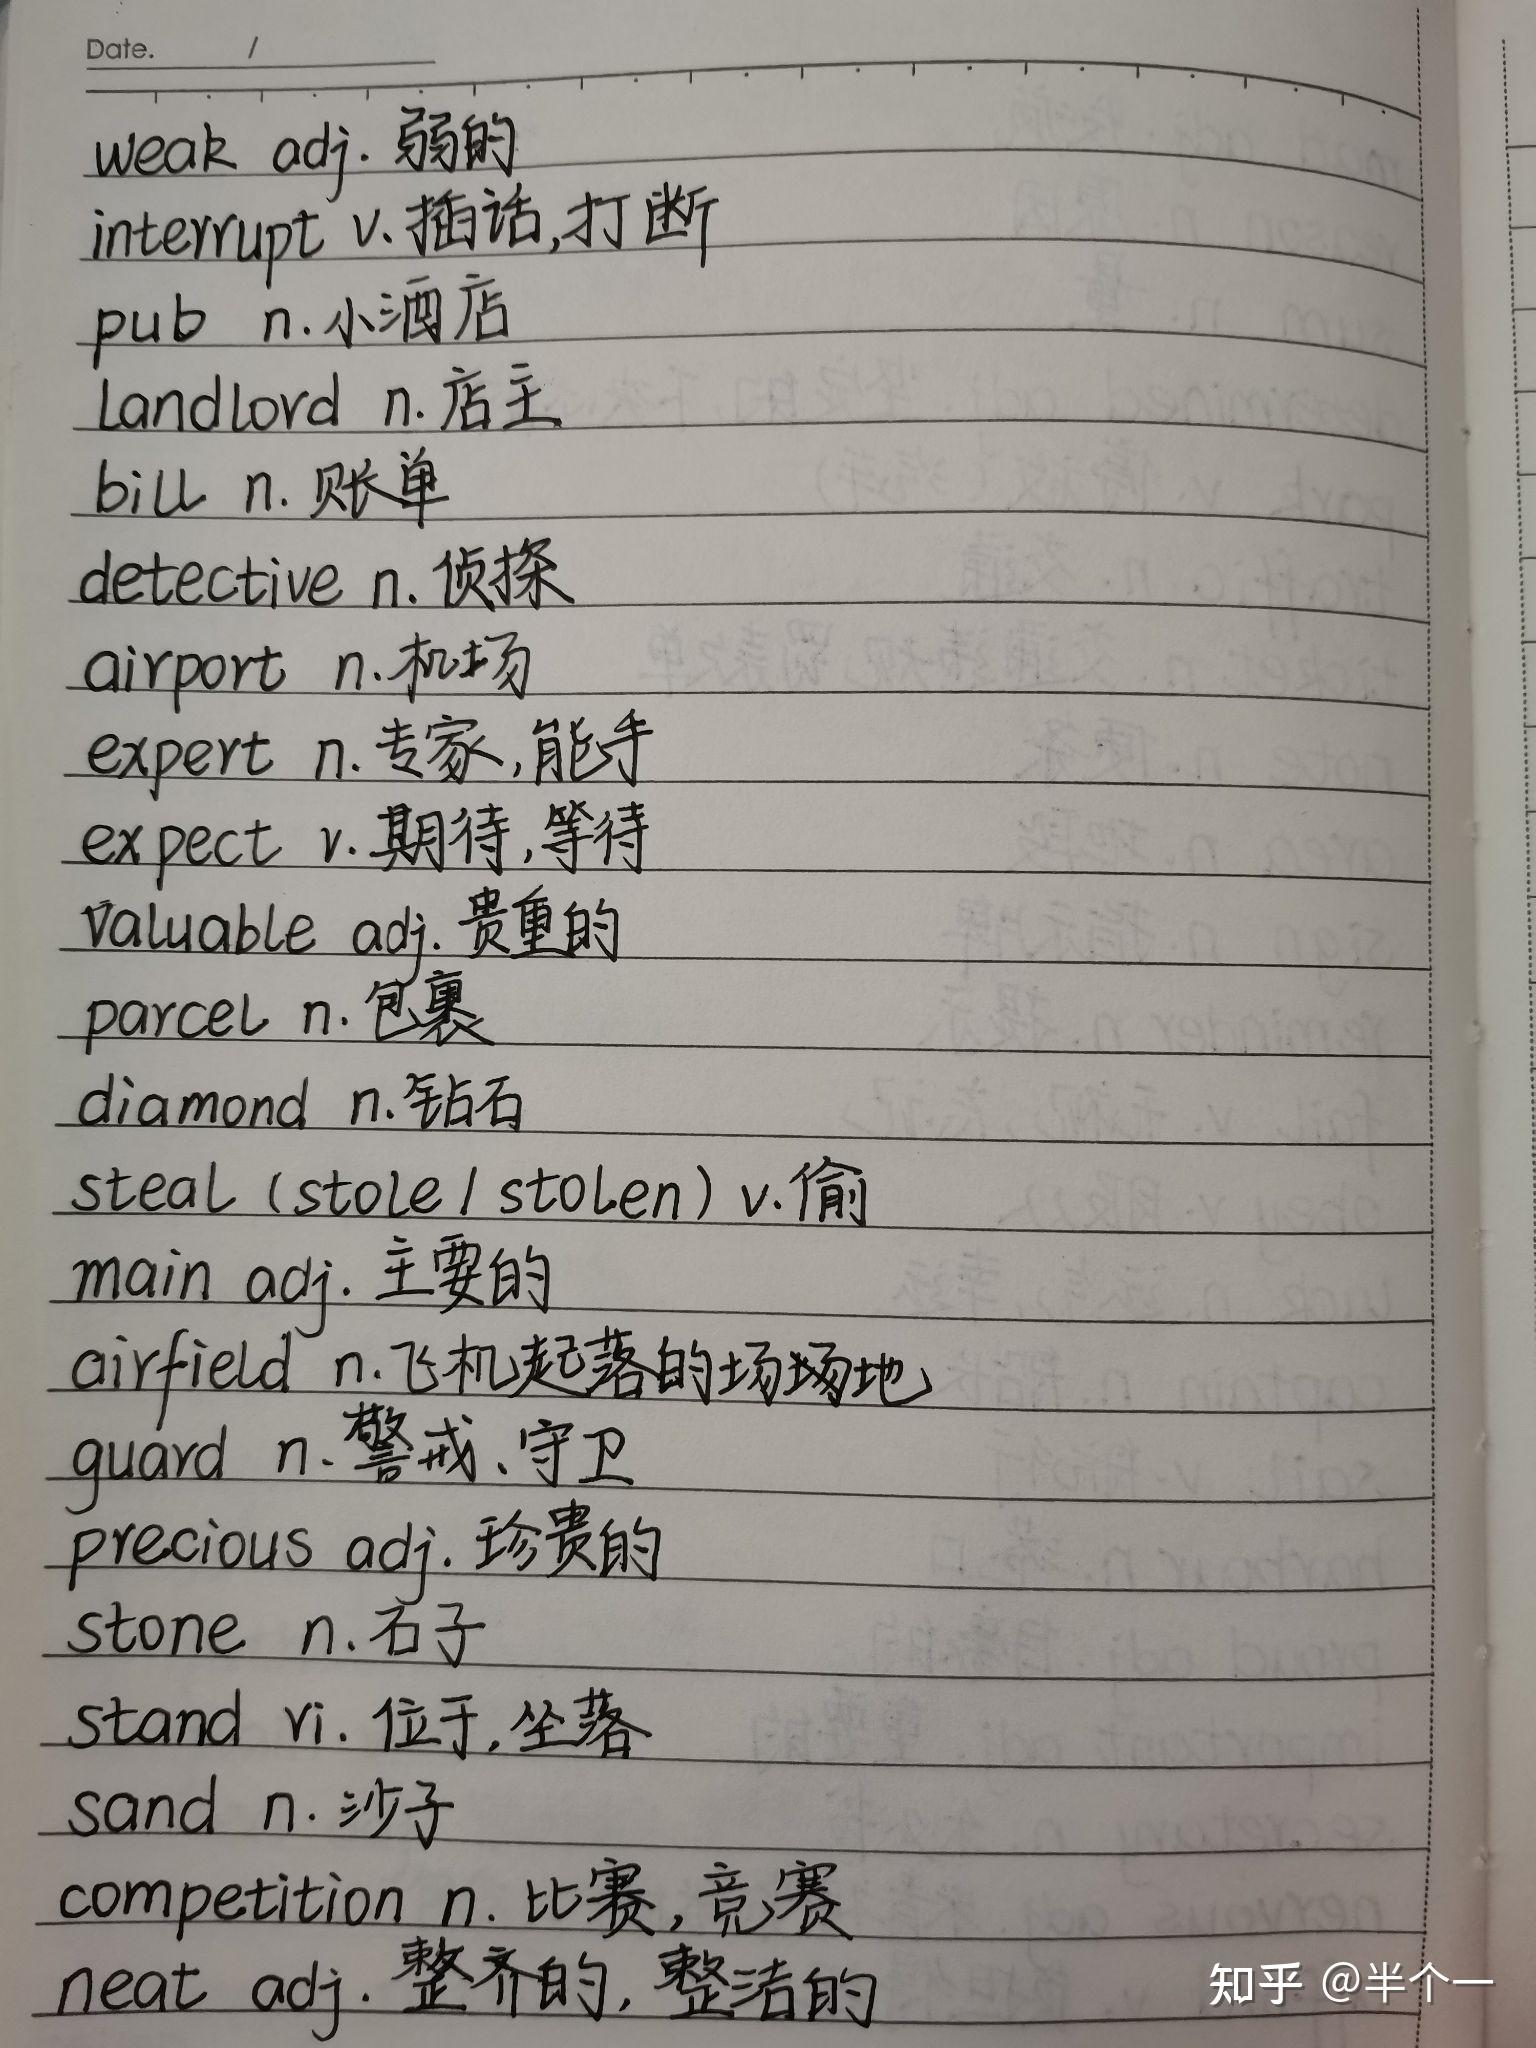 Date. /
weak adj. 弱的
interrupt v. 插话,打断
pub n. 小酒店
landlord n. 店主
bill n. 账单
detective n. 侦探
airport n. 机场
expert n. 专家,能手
expect v. 期待,等待
valuable adj. 贵重的
parcel n. 包裹
diamond n. 钻石
steal (stole/stolen) v. 偷
main adj. 主要的
airfield n. 飞机起落的场场地
guard n. 警戒、守卫
precious adj. 珍贵的
stone n. 石子
stand vi. 位于,坐落
sand n. 沙子
competition n. 比赛,竞赛
neat adj. 整齐的,整洁的
知乎 @半个一